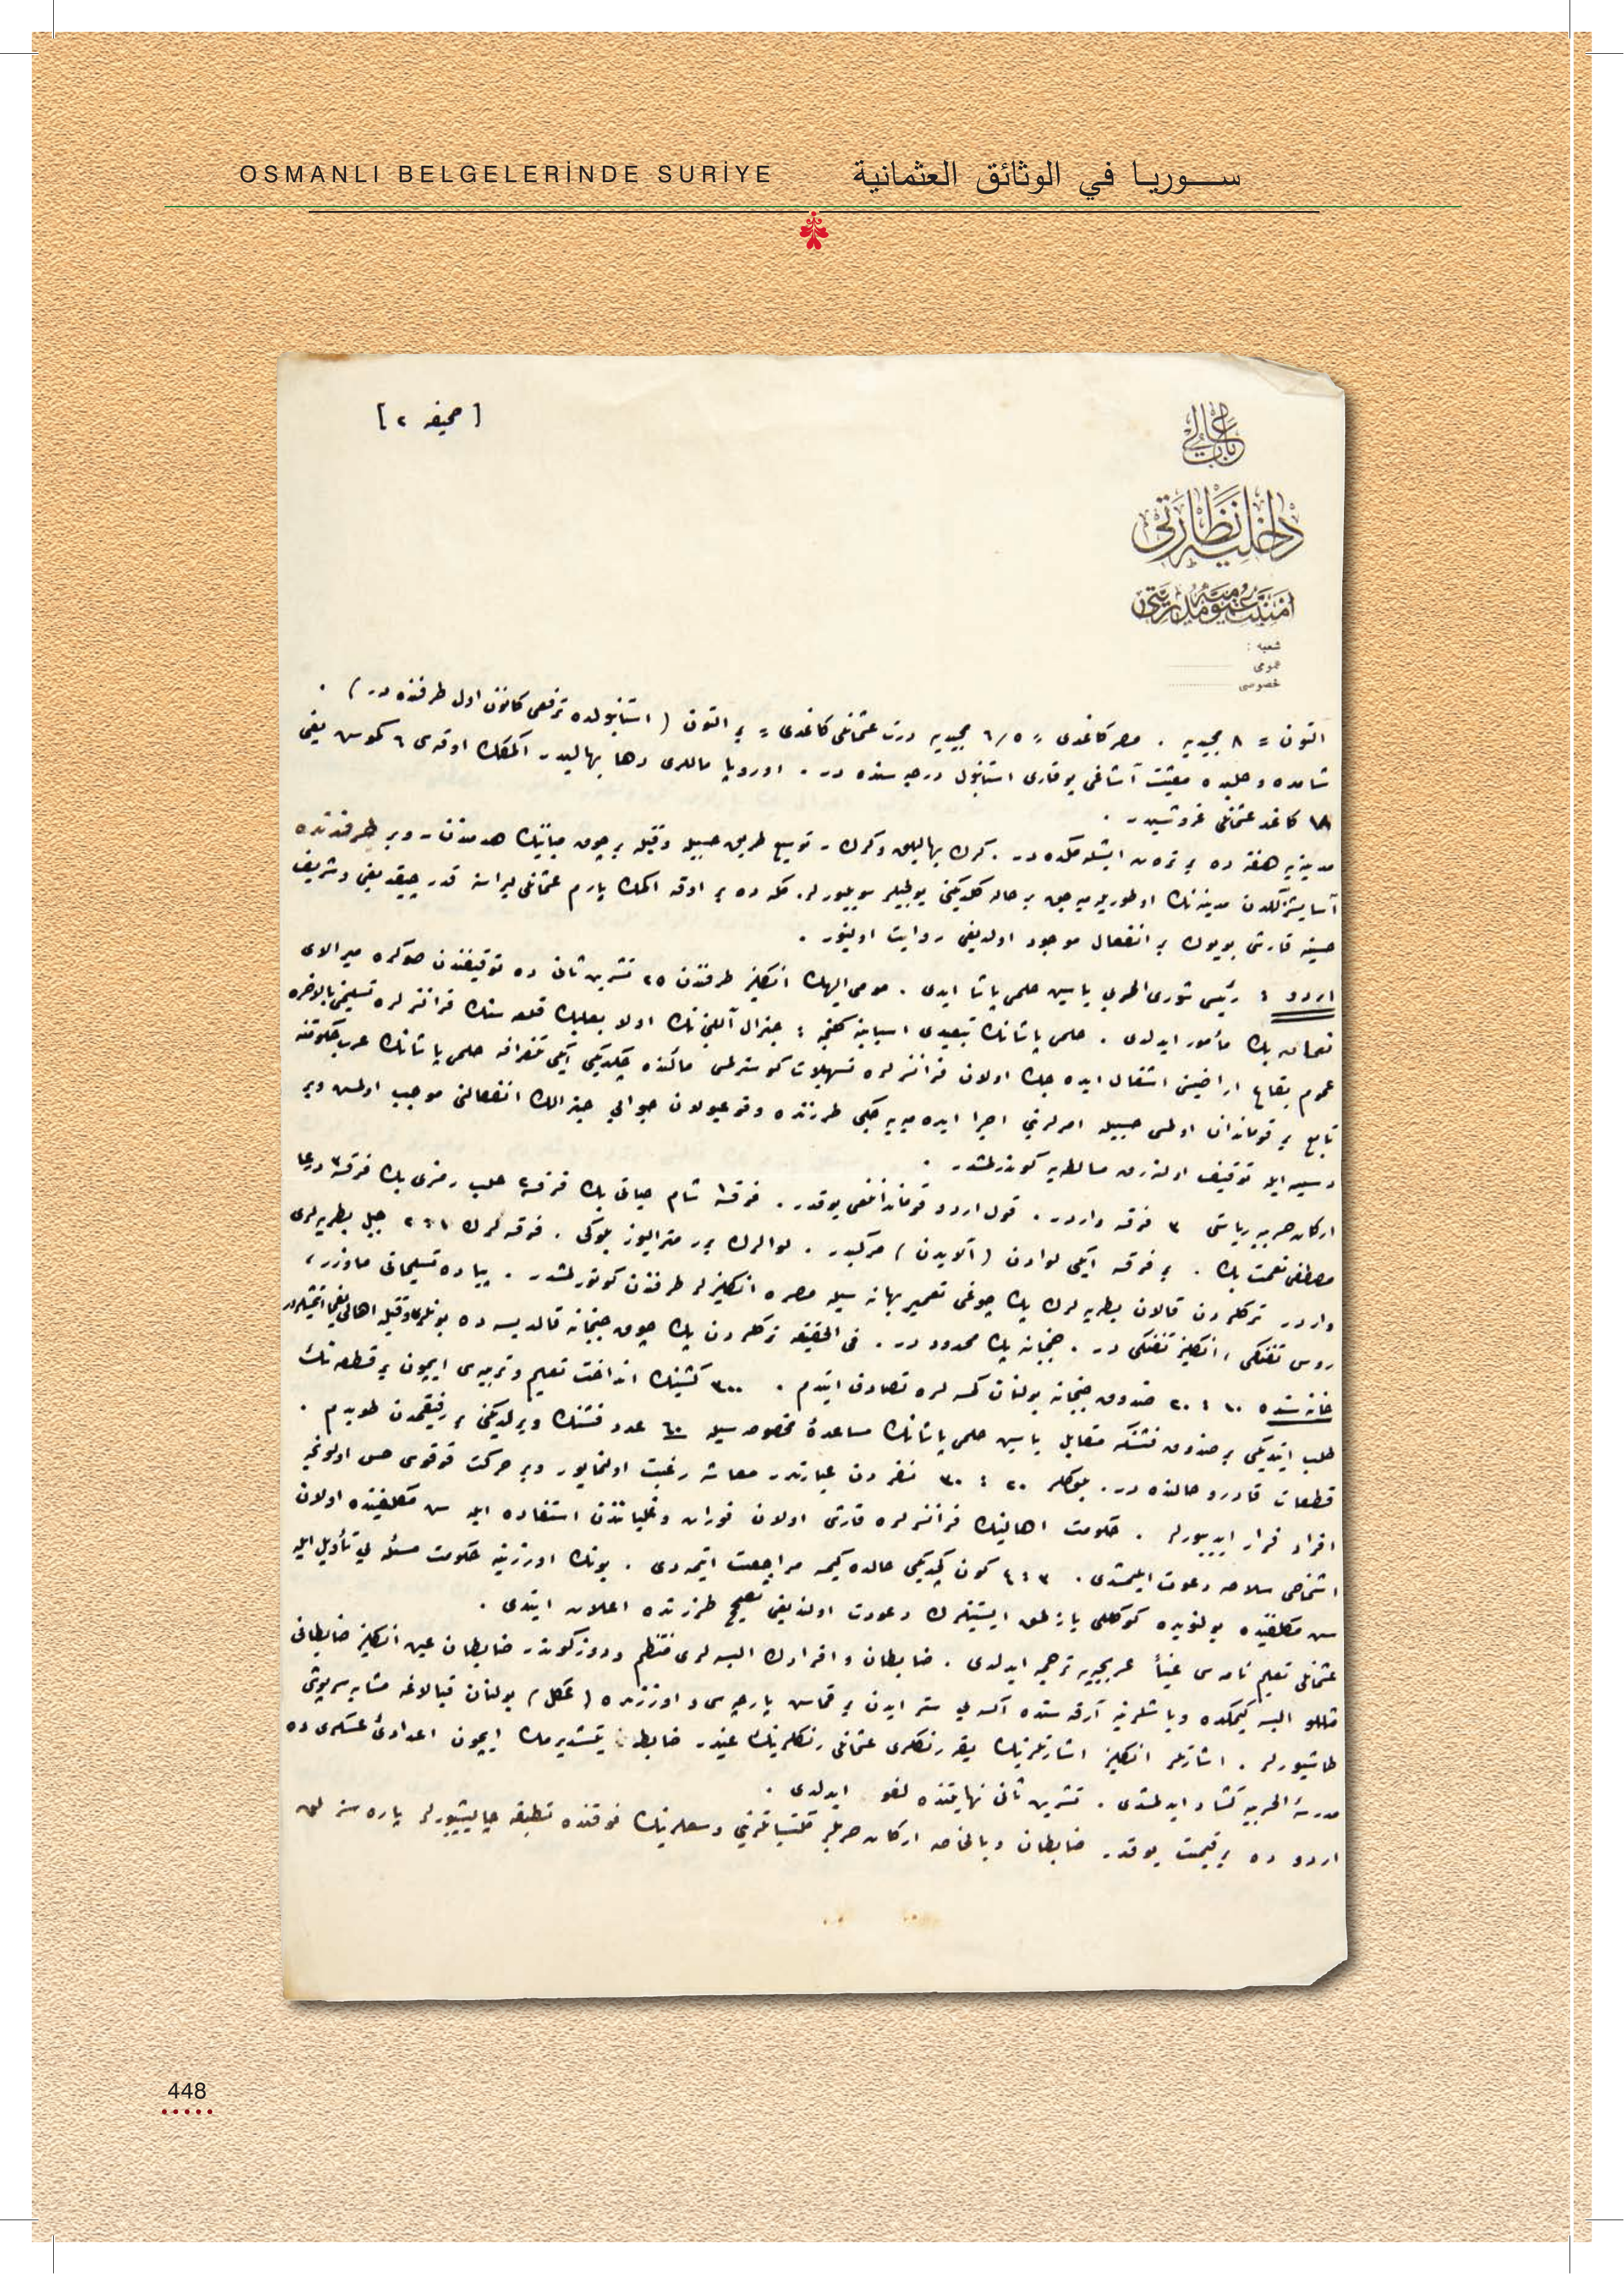 OSMANLI BELGELERİNDE SURİYE
سـوريـا في الوثائق العثمانية
[ صحيفه ٢ ]
باب عالی
داخليه نظارتی
امنيت عموميه مديريتی
شعبه :
عمومی
خصوصی
التون = ٨ مجيديه . مصر كاغدی = ٦/٥ مجيديه درت عثمانلی كاغدی = بر التون ( استانبولده ترفعی كانون اول ظرفنده در ) .
شامده و حلبده معيشت آشاغی يوقاری استانبول درجه سنده در . اوروپا ماللری دها بهاليدر اكمك اوقه‌سی ٦ كموش يعنی
١٨ كاغد عثمانلی غروشيدر .
مدينه‌يه هفته ده بر ترن ايشلمكده در . كرك بهاليلق وكرك توسيع طريق حسبيله وقتيله بر چوق مبانينك هدمندن وبر طرفدنده
آسايشسزلكدن مدينه‌نك اوطوريله‌ميه‌جق بر حاله كلديكنی يولجيلر سويليورلر . مكه ده بر اوقه اكمك يارم عثمانلی ليراسنه قدر چيقديغی وشريف
حسينه قارشی بويوك بر انفعال موجود اولديغی روايت اولنيور .
اردو : رئيس شوری الحربی ياسين حلمی پاشا ايدی . مومی اليهك انكليز طرفندن ٢٥ تشرين ثانی ده توقيفندن صوكره ميرالای
نعمان بك مأمور ايدلدی . حلمی پاشانك تبعيدی اسبابنه كلنجه : جنرال آللنبی‌نك اولا بعلبك قلعه سنك فرانسزلره تسليمنی بالاخره
عموم بقاع اراضيسنی اشغال ايده جك اولان فرانسزلره تسهيلات كوسترلمسی مآلنده چكديكی ايكی تلغرافه حلمی پاشانك عرب حكومتنه
تابع بر قوماندان اولمسی حسبيله امرلرينی اجرا ايده ميه جكی طرزنده وقوعبولان جوابی جنرالك انفعالنی موجب اولمش وبر
دسيسه ايله توقيف اولنه‌رق صالطه‌يه كوندرلمشدر .
اركان حربيه رياستی ٣ فرقه واردر . قول اردو قوماندانلغی يوقدر . فرقه ١ شام حياتی بك فرقه ٢ حلب رمزی بك فرقه ٣ درعا
مصطفی نعمت بك . بر فرقه ايكی لوادن ( آلايدن ) مركبدر . لوالرك برر متراليوز بلوكی . فرقه لرك ١ : ٢ جبل بطريه‌لری
واردر تركلردن قالان بطريه لرك پك چوغی تعمير بهانه سيله مصره انكليزلر طرفندن كوتورلمشدر . پياده تسليحاتی ماوزر ،
روس تفنكی ، انكليز تفنكی در . جبخانه پك محدود در . فی الحقيقه تركلردن پك چوق جبخانه قالديسه ده بونلری وقتيله اهالی يغما ايتمشلردر
خانه سنده ١٠ : ٢٠ صندوق جبخانه بولنان كمسه لره تصادف ايتدم . ٣٠٠ كشينك انداخت تعليم وتربيه‌سی ايچون بر قطعه نك
طلب ايتديكی بر صندوق فشنكه مقابل ياسين حلمی پاشانك مساعدهٔ مخصوصه سيله ٦٠ عدد فشنك ويرلديكنی بر رفيقمدن طويدم .
قطعات قادرو حالنده در . بلوكلر ٢٠ : ٣٠ نفردن عبارتدر معاشه رغبت اولنمايور وبر حركت قوقوسی حس اولونجه
افراد فرار ايدييورلر . حكومت اهالينك فرانسزلره قارشی اولان فوران وغليانندن استفاده ايله سن مكلفيتنده اولان
اشخاصی سلاحه دعوت ايتمشدی . ٣ : ٤ كون كچديكی حالده كيمسه مراجعت ايتمدی . بونك اوزرينه حكومت مسئله يی تأويل ايله
سن مكلفيتده بولنوبده كوكللی يازلمق ايستينلرك دعوت اولنديغی تصحيح طرزنده اعلان ايتدی .
عثمانلی تعليم نامه سی عيناً عربجه‌يه ترجمه ايدلدی . ضابطان وافرادك البسه لری منتظم ودوزكوندر ضابطان عين انكليز ضابطانی
مثللو البسه كيمكده وباشلرينه آرقه سنده اكسه يی ستر ايدن بر قماش پارچه سی و اوزرنده ( عكل ) بولنان قبالاغه مشابه سرپوش
طاشيورلر . اشارتلر انكليز اشارتلرينك يقه رنكلری عثمانلی رنكلرينك عينيدر ضابطان يتشديرمك ايچون اعدادئ عسكری ده
مدرسة الحربيه كشاد ايدلمشدی . تشرين ثانی نهايتنده لغو ايدلدی .
اردو ده بر قيمت يوقدر ضابطان وبالخاصه اركان حربلر مكتسباتلرينی وسعلرينك فوقنده تطبيقه چاليشيورلر پاره سزلق
448